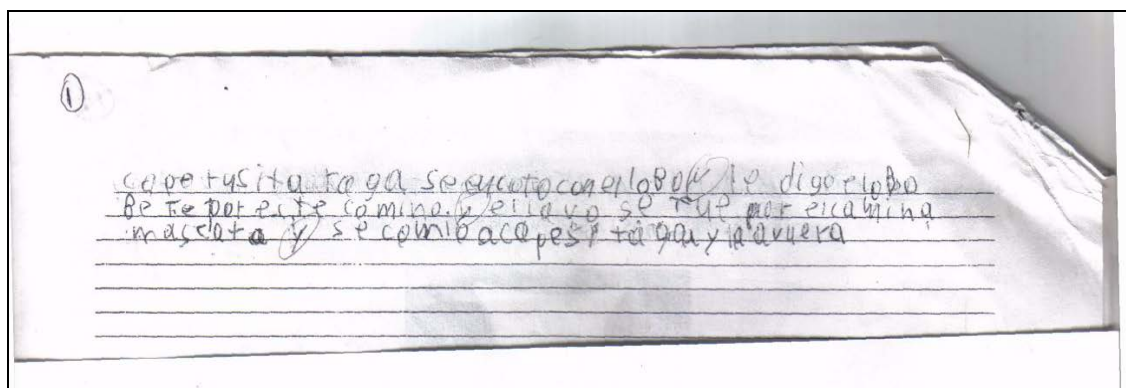 1
capetusita roga se encoto con el loBo y le digo el loBo
Bete por este camino. y el lavo se fue por el camino
mascota y se comio a capesita ga y la avuera